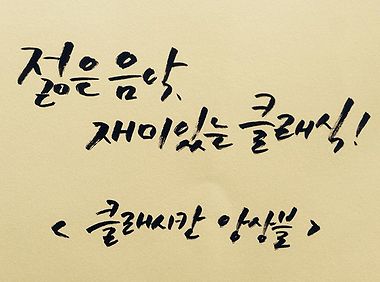 젊은 음악,
재미있는 클래식!
< 클래시칸 앙상블 >